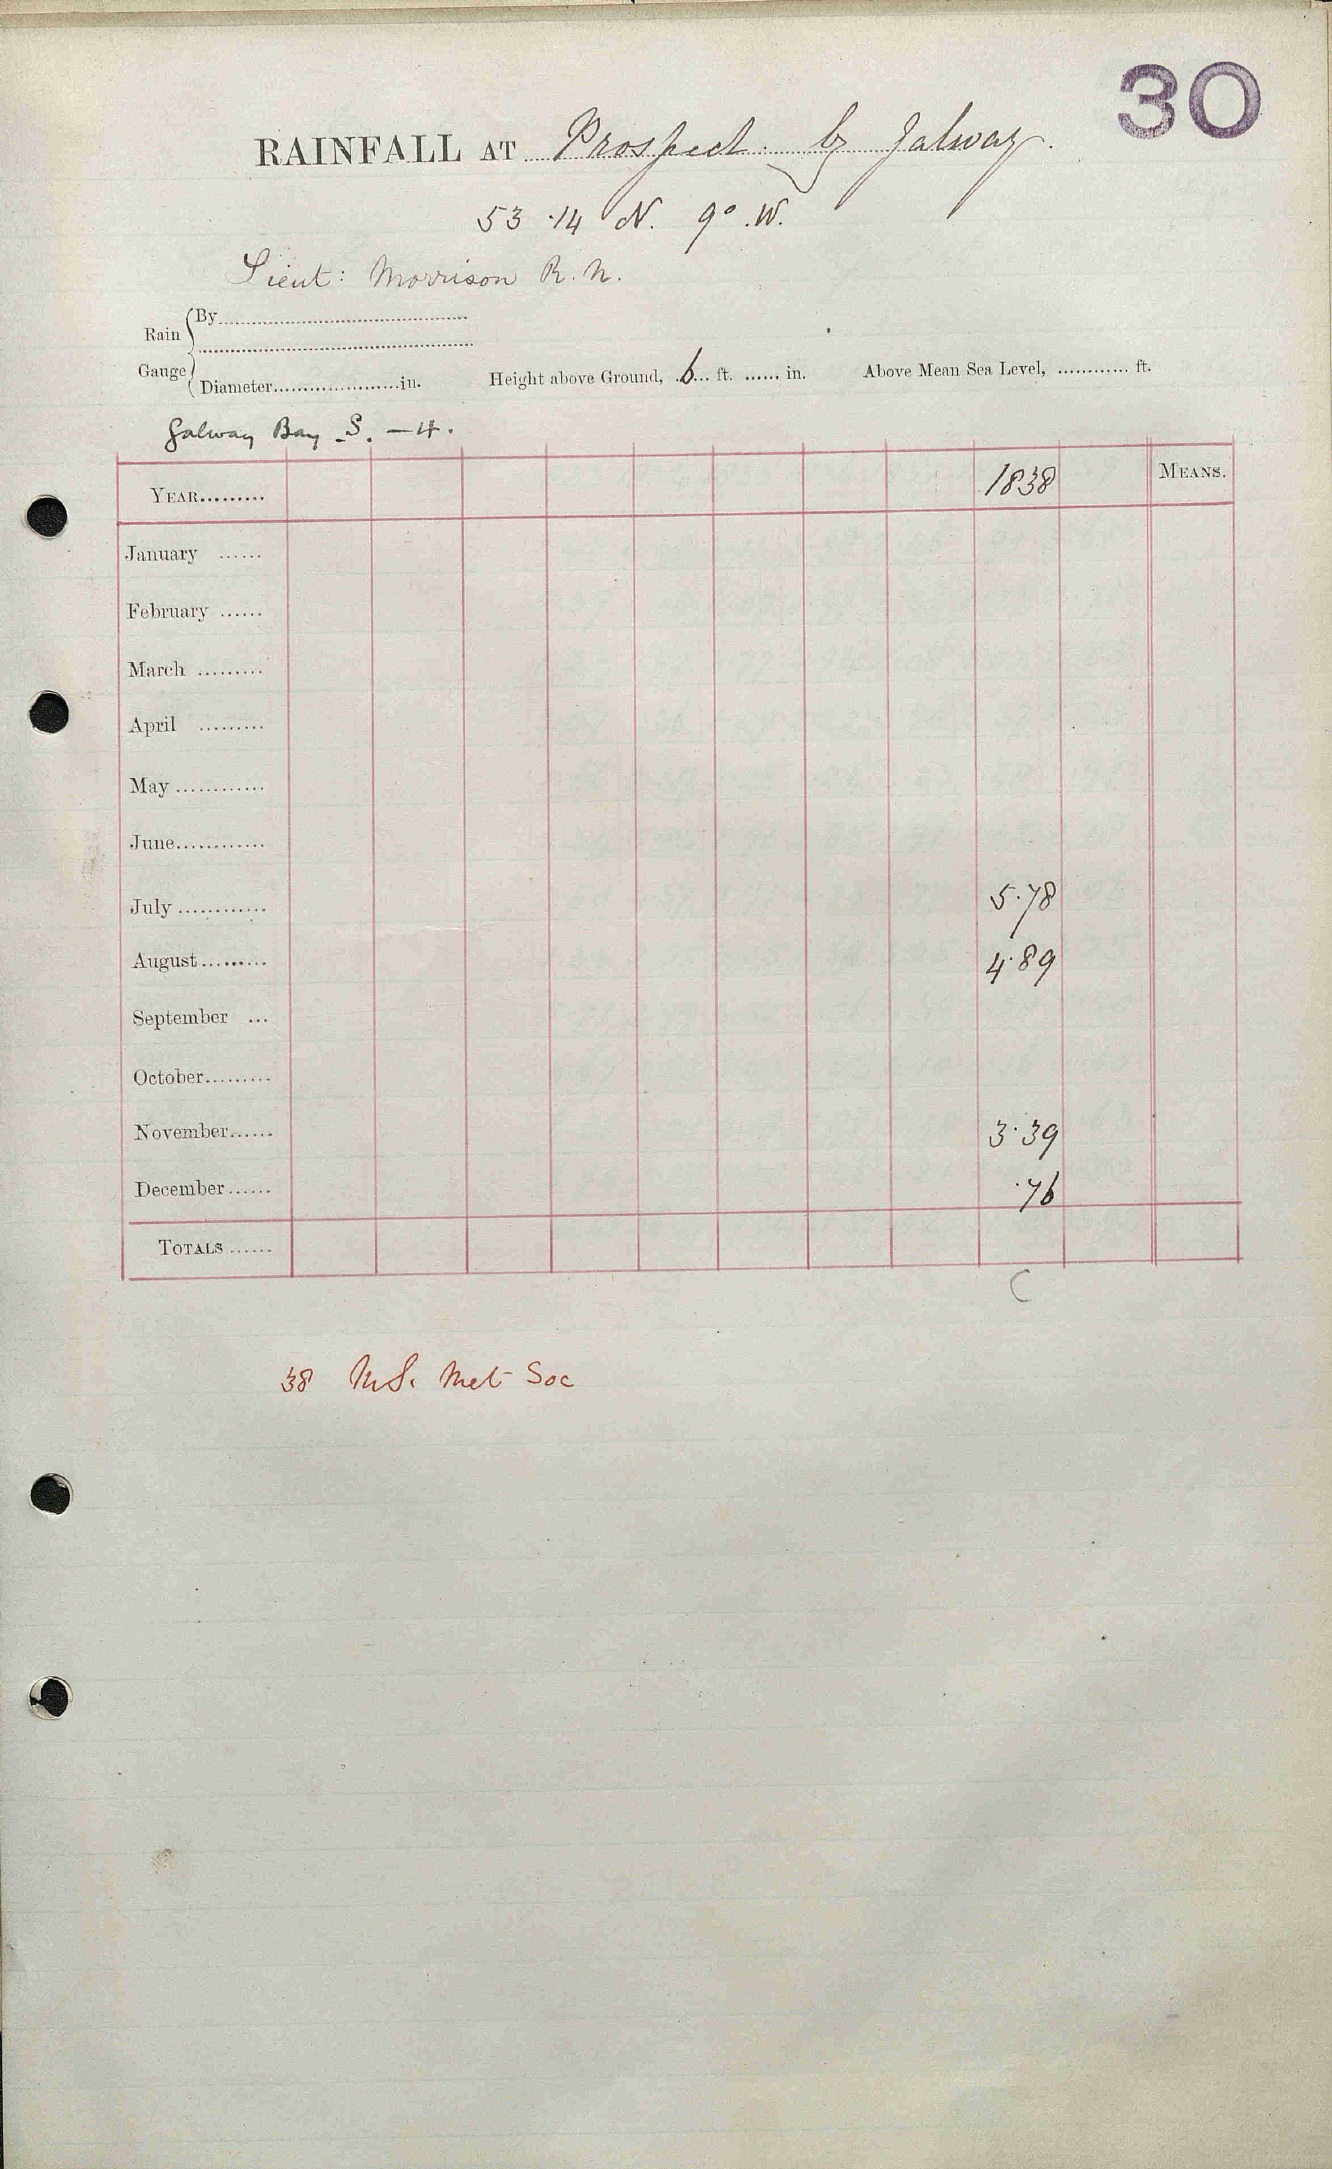 30
RAINFALL AT Prospect by Galway.
53.14 N. 9° W.
Lieut: Morrison R.N.
Rain Gauge
By
Diameter in. Height above Ground, 6 ft. in. Above Mean Sea Level, ft.
Galway Bay S. – 4.
YEAR 1838 MEANS.
January
February
March
April
May
June
July 5.78
August 4.89
September
October
November 3.39
December .76
TOTALS
C
38 MS. Met Soc